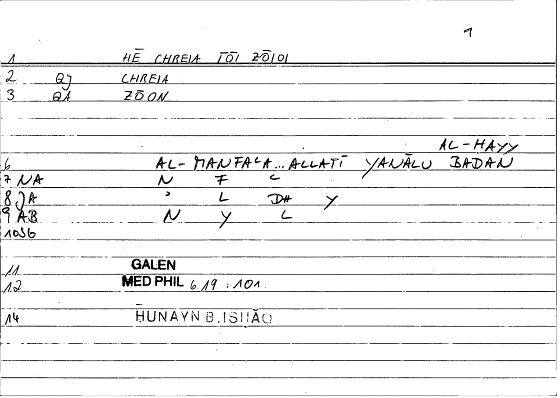 1
1 HĒ CHREIA TŌI ZŌIOI
2 QJ CHREIA
3 QA ZŌON
AL-HAYY
6 AL-MANFAʿA...ALLATĪ YANĀLU BADAN
7 NA N F ʿ
8 JA ʾ L DH Y
9 AB N Y L
1036
11 GALEN
12 MED PHIL 6 19 : 101
14 HUNAYN B. ISHĀQ